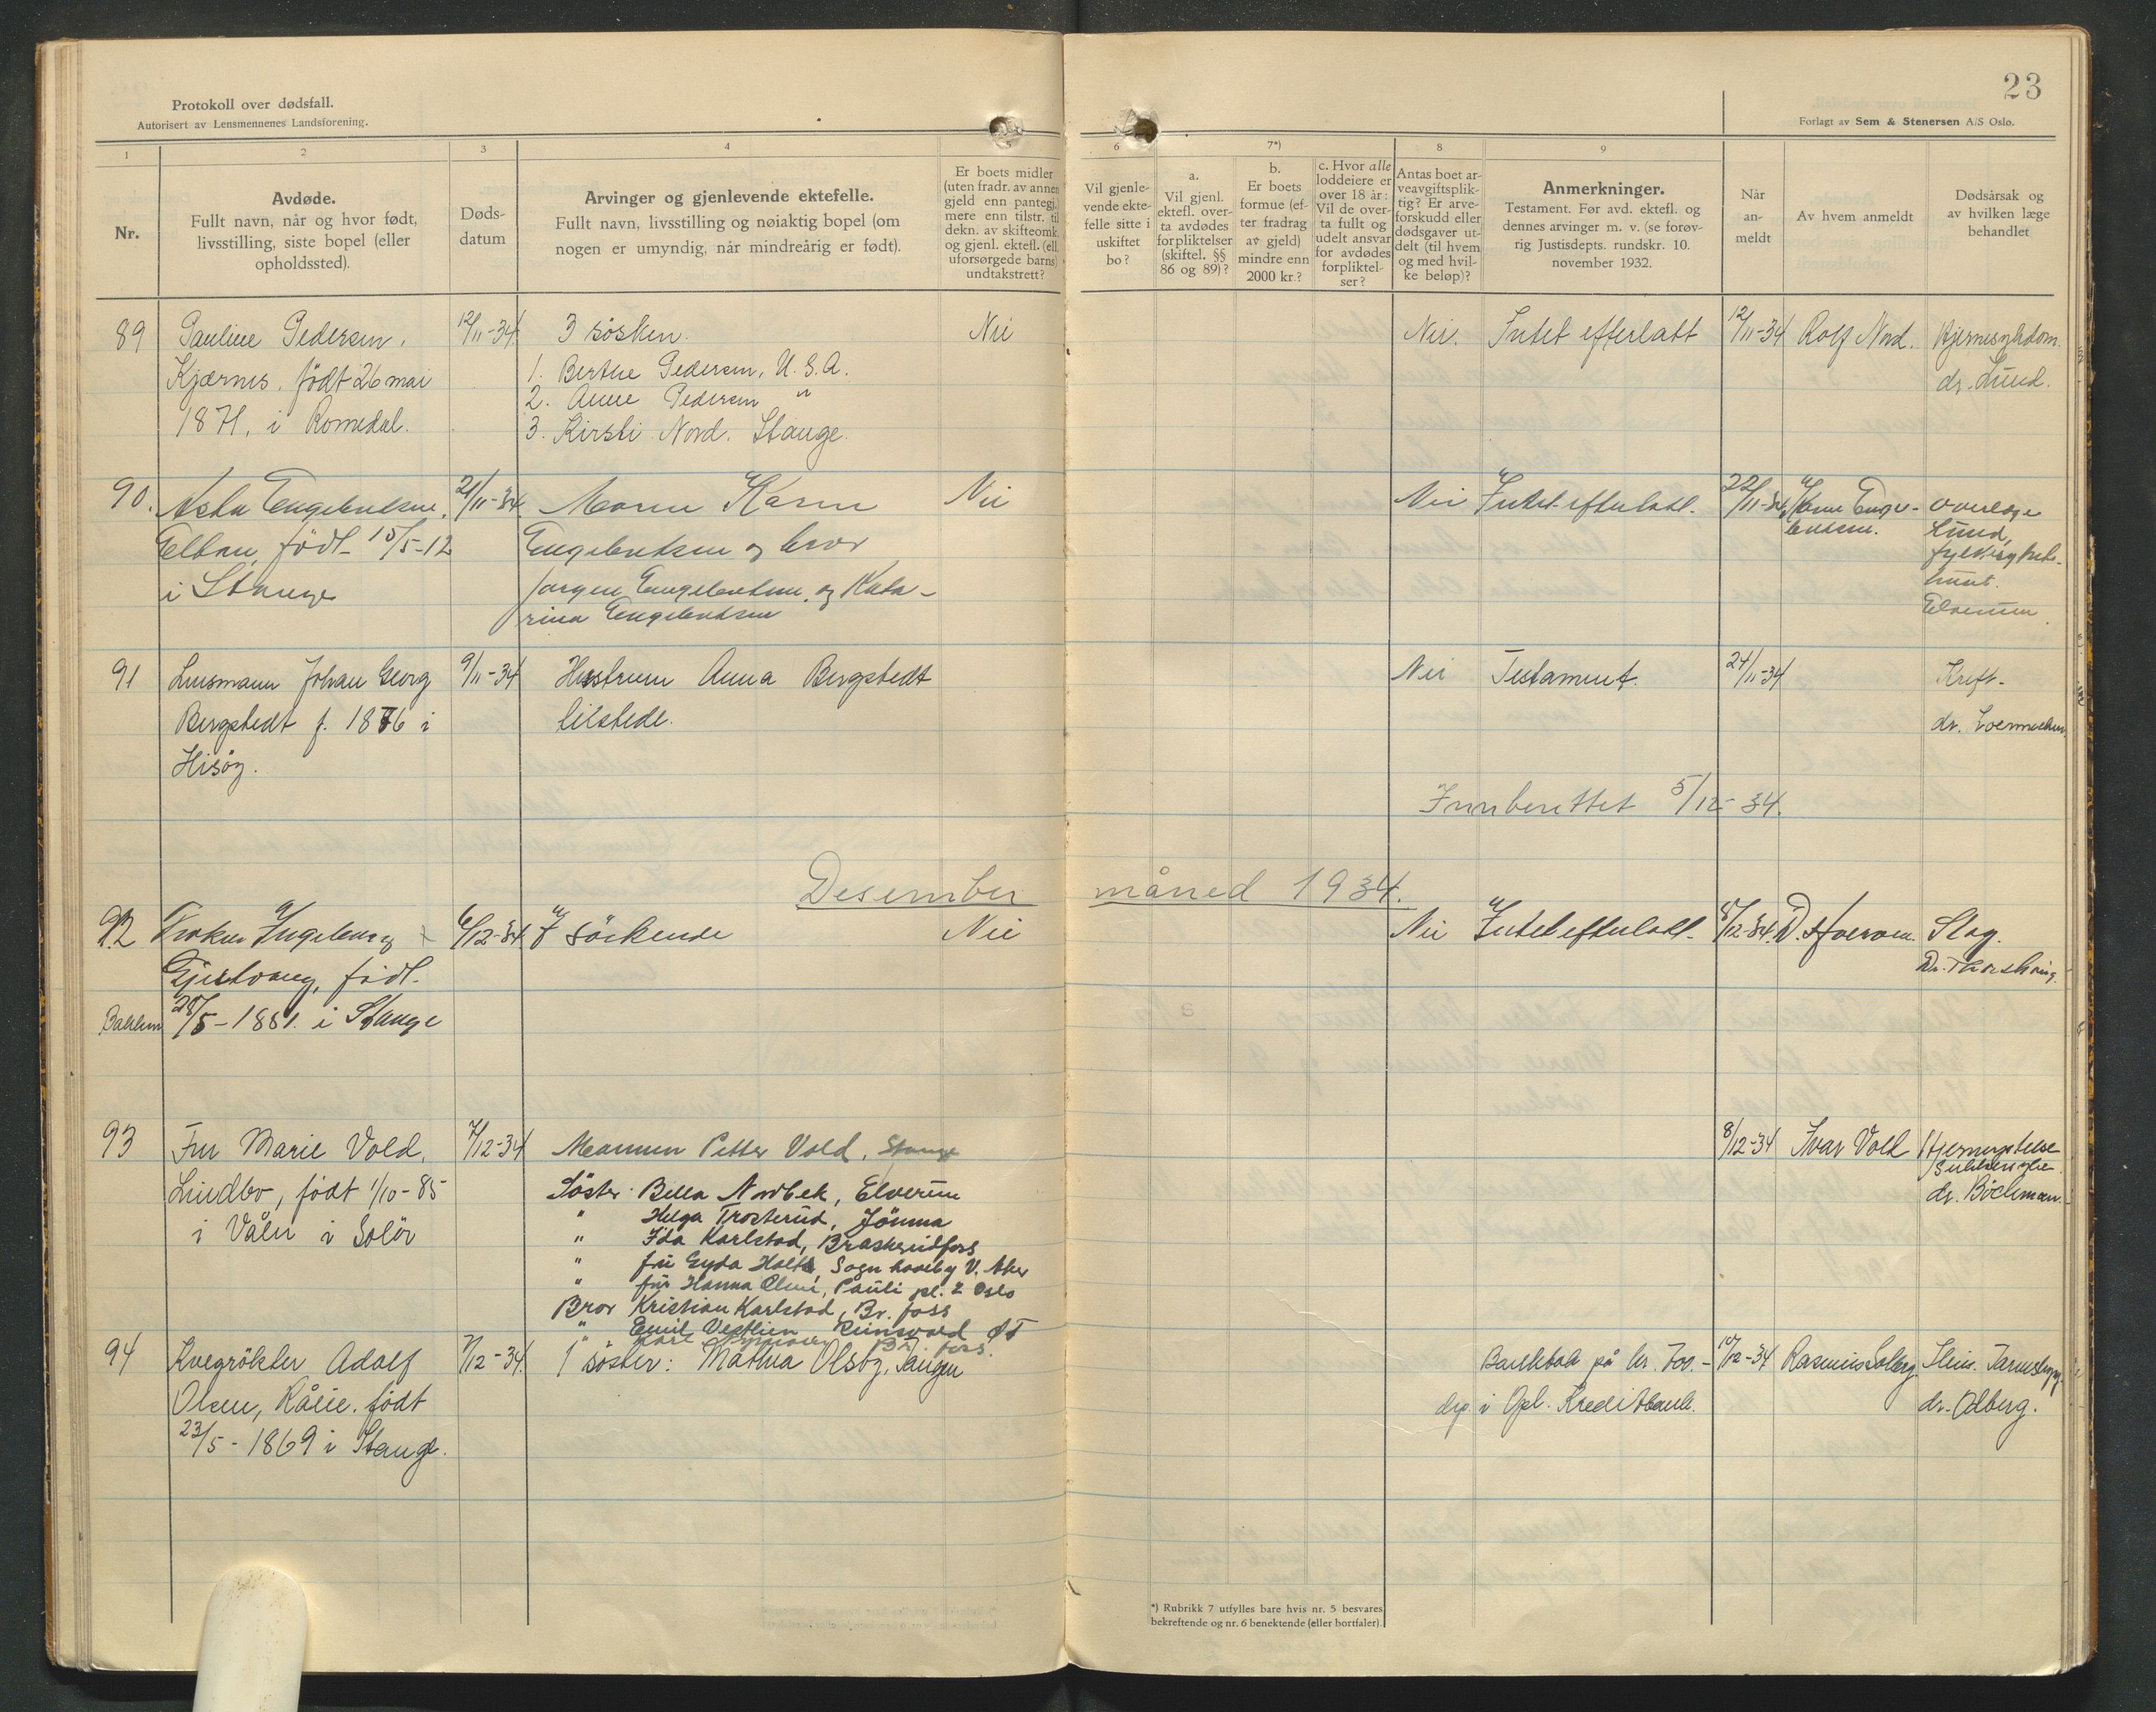 Protokoll over dødsfall.
Autorisert av Lensmennenes Landsforening.
23
Forlagt av Sem & Stenersen A/S Oslo.
1
2
3
4
5
6
7*)
8
9
Nr.
Avdøde.
Fullt navn, når og hvor født,
livsstilling, siste bopel (eller
opholdssted).
Døds-
datum
Arvinger og gjenlevende ektefelle.
Fullt navn, livsstilling og nøiaktig bopel (om
nogen er umyndig, når mindreårig er født).
Er boets midler
(uten fradr. av annen
gjeld enn pantegj.)
mere enn tilstr. til
dekn. av skifteomk.
og gjenl. ektef. (ell.
uforsørgede barns)
undtakstrett?
Vil gjenle-
vende ekte-
felle sitte i
uskiftet
bo?
a.
Vil gjenl.
ektefl. over-
ta avdødes
forpliktelser
(skiftel. §§
86 og 89)?
b.
Er boets
formue (ef-
ter fradrag
av gjeld)
mindre enn
2000 kr.?
c. Hvor alle
loddeiere er
over 18 år:
Vil de over-
ta fullt og
udelt ansvar
for avdødes
forpliktel-
ser?
Antas boet ar-
veavgiftsplik-
tig? Er arve-
forskudd eller
dødsgaver ut-
delt (til hvem
og med hvil-
ke beløp)?
Anmerkninger.
Testament. Før avd. ektefl. og
dennes arvinger m. v. (se forøv-
rig Justisdepts. rundskr. 10.
november 1932.
Når
an-
meldt
Av hvem anmeldt
Dødsårsak og
av hvilken læge
behandlet
89 Pauline Pedersen, 12/11-34 3 søsken. Nei Nei. Intet efterlatt 12/11-34 Rolf Nord. Hjernesykdom.
Kjærnes, født 26 mai 1. Berthe Pedersen, U.S.A. dr. Lund.
1871, i Romedal. 2. Anne Pedersen "
3. Kirsti Nord. Stange.
90. Asta Engebretsen, 21/11-34. Moren Karen Nei Nei Intet efterlatt. 22/11-34 Karen Enge- Overlege
født 15/5-12 Engebretsen og bror bretsen. Lund,
i Stange Jørgen Engebretsen og Kata-
rina Engebretsen Elverum.
91 Lensmann Johan Georg 9/11-34 Hustruen Anna Bergstedt Nei Testament. 24/11-34 Kreft.
Bergstedt f. 1876 i tilstede. dr.
Hisøy.
Innberettet 5/12-34.
Desember måned 1934.
92 Frøken Ingeborg 6/12-34 7 søskende Nei Nei Intet efterlatt. 8/12-34. Slag.
Gjestvang, født Dr. Thorshaug.
28/5-1881. i Stange
93 Fru Marie Vold, 7/12-34 Mannen Petter Vold, Stange 8/12-34 Ivar Vold
Lindbo, født 1/10-85 Søster Bella Nordbek, Elverum Sukkersyke
i Våler i Solør " Helga Trosterud, Jømna dr. Böckman.
" Ida Karlstad, Braskereidfoss
" fru Gyda Holt, Sogn haveby V. Aker
" fru Hanna Pauli pl. 2 Oslo
Bror Kristian Karlstad, Br. foss
" Emil Vestlien Reinsvold ØT
" Karl Br. foss.
94 Kvegrøkter Adolf 7/12-34. 1 søster: Mathea Olsby, Tangen Bankbok på kr. 700.- 10/12-34 Rasmus Solberg
Olsen, Råeie. født i Opl. Kreditbank. dr. Odberg.
23/5-1869 i Stange.
*) Rubrikk 7 utfylles bare hvis nr. 5 besvares
bekreftende og nr. 6 benektende (eller bortfaler).